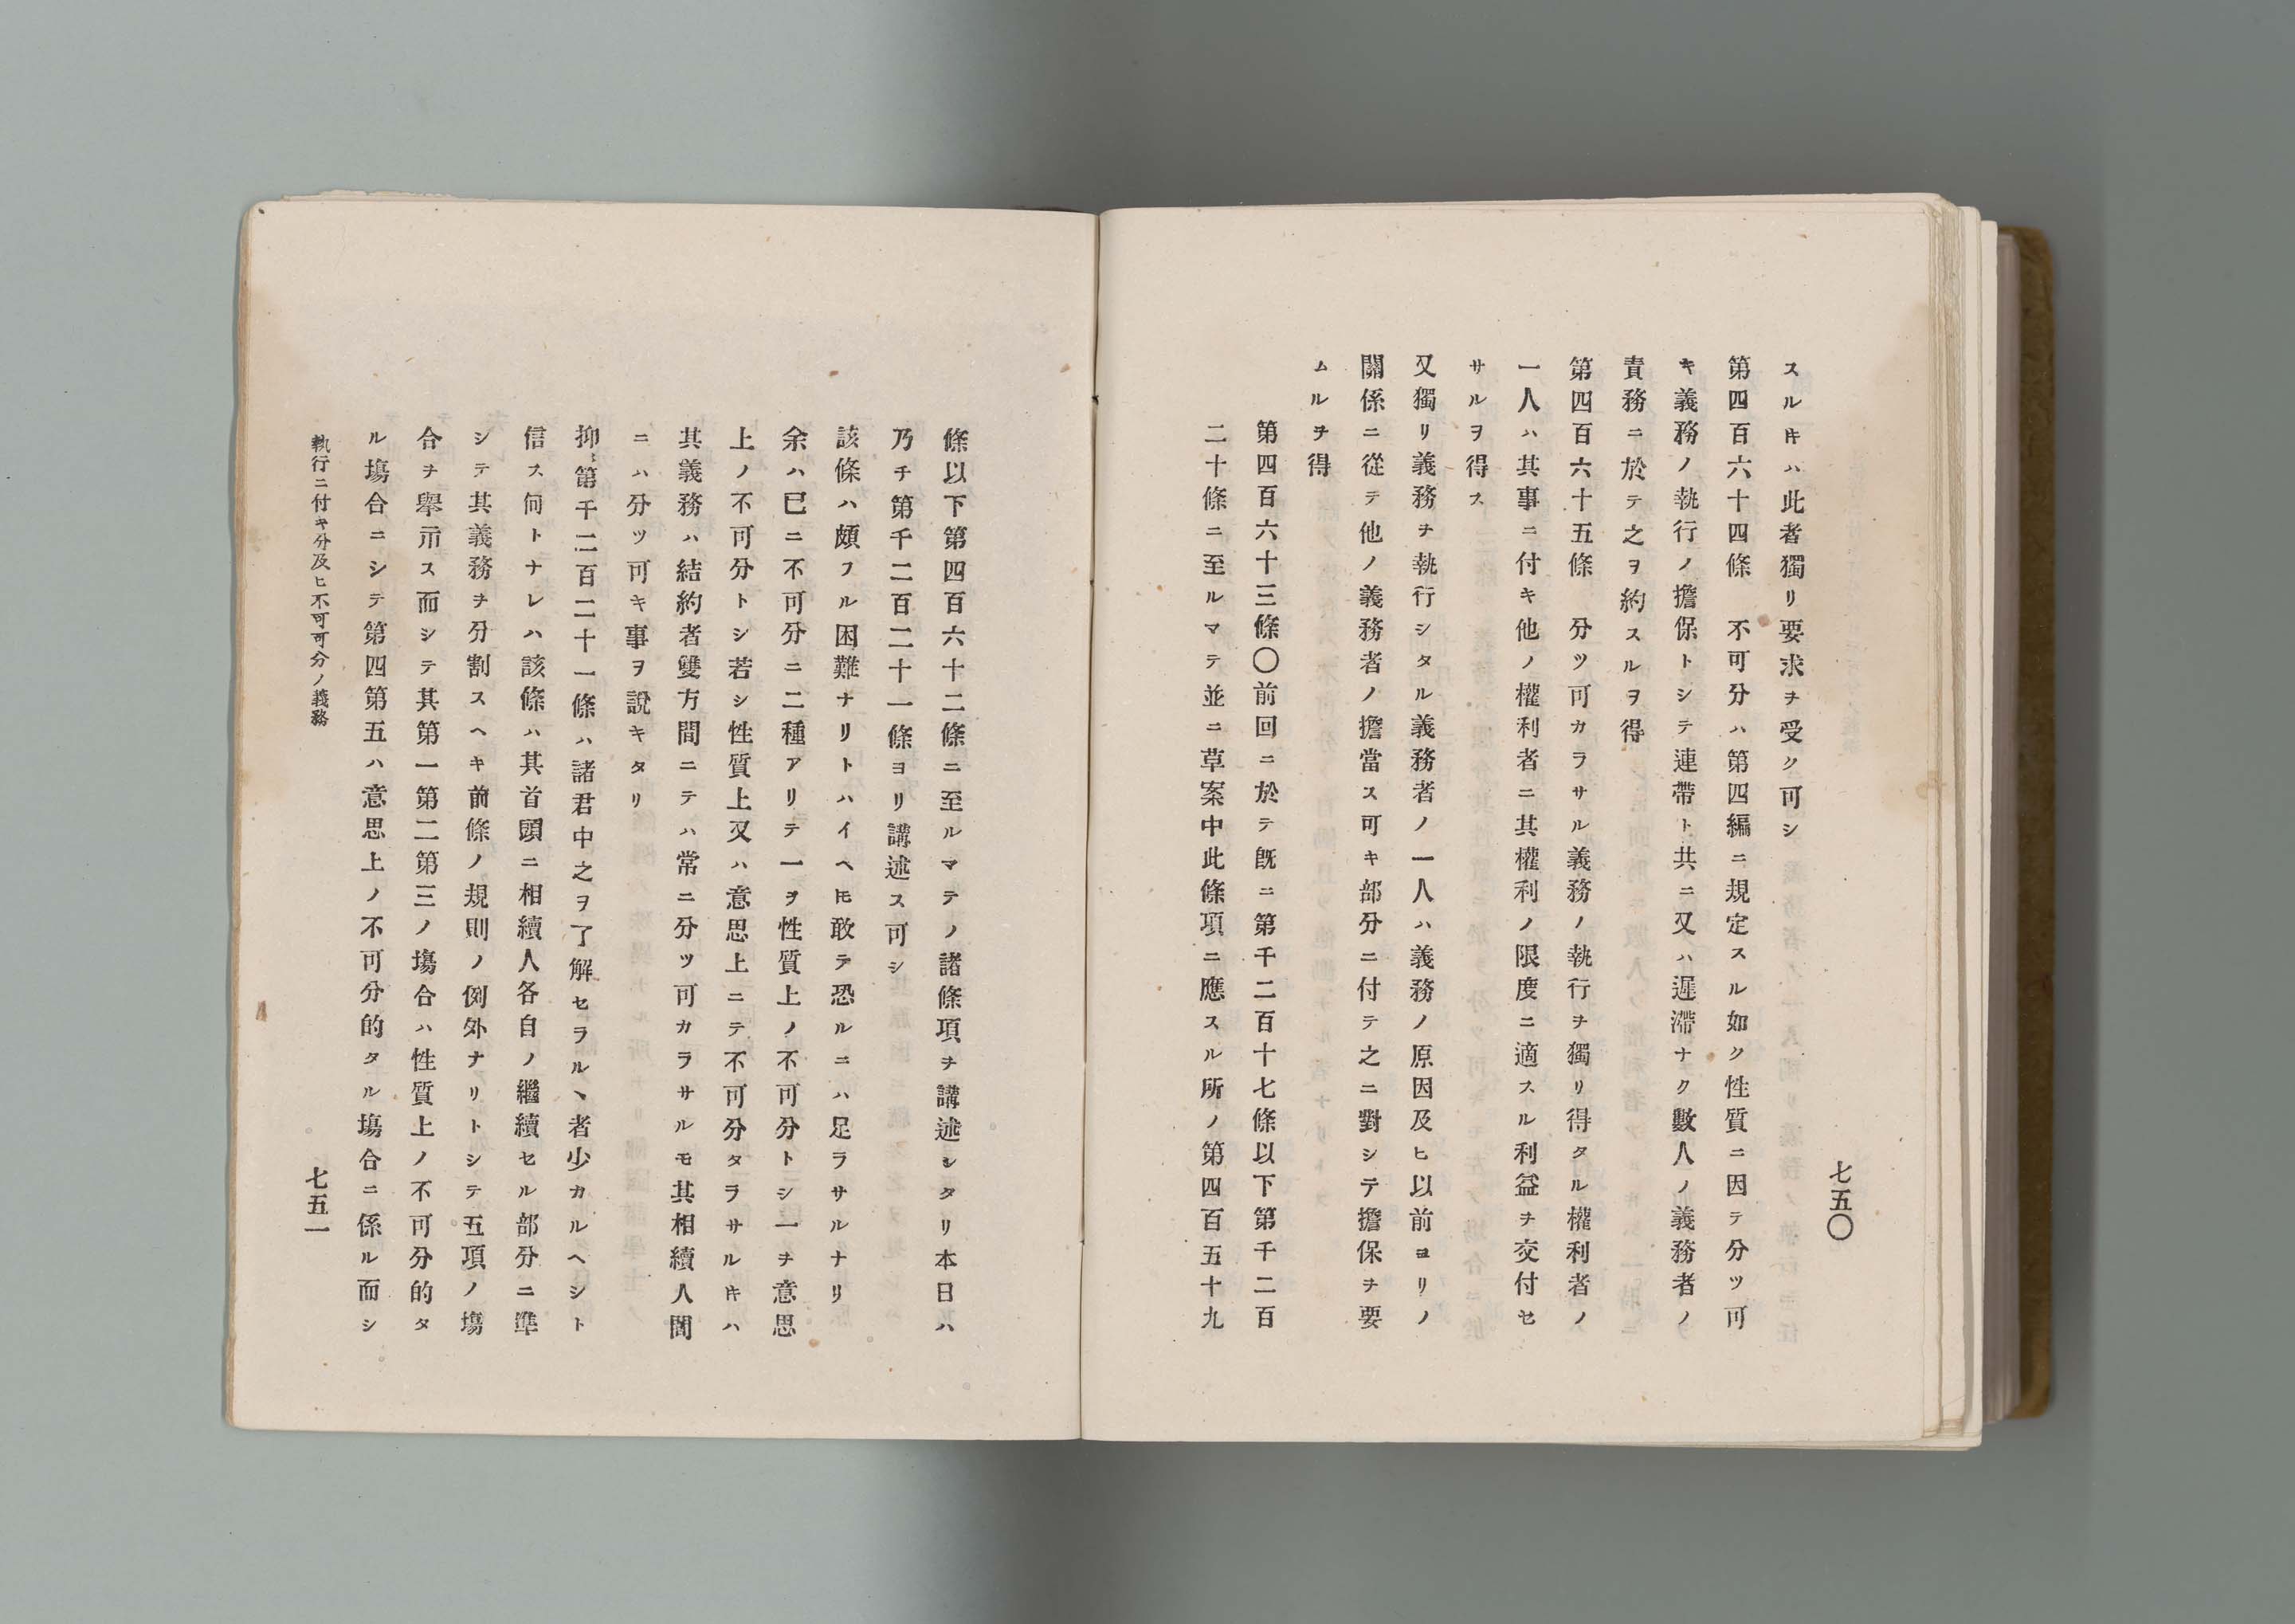 七五〇
スルキハ此者獨リ要求ヲ受ク可シ
第四百六十四條　不可分ハ第四編ニ規定スル如ク性質ニ因テ分ツ可
キ義務ノ執行ノ擔保トシテ連帶ト共ニ又ハ遲滯ナク數人ノ義務者ノ
責務ニ於テ之ヲ約スルヲ得
第四百六十五條　分ツ可カラサル義務ノ執行ヲ獨リ得タル權利者ノ
一人ハ其事ニ付キ他ノ權利者ニ其權利ノ限度ニ適スル利益ヲ交付セ
サルヲ得ス
又獨リ義務ヲ執行シタル義務者ノ一人ハ義務ノ原因及ヒ以前ヨリノ
關係ニ從テ他ノ義務者ノ擔當ス可キ部分ニ付テ之ニ對シテ擔保ヲ要
ムルヲ得
第四百六十三條〇前回ニ於テ既ニ第千二百十七條以下第千二百
二十條ニ至ルマテ並ニ草案中此條項ニ應スル所ノ第四百五十九
條以下第四百六十二條ニ至ルマテノ諸條項ヲ講述シタリ本日ハ
乃チ第千二百二十一條ヨリ講述ス可シ
該條ハ頗フル困難ナリトハイヘ𪜈敢テ恐ルニハ足ラサルナリ
余ハ已ニ不可分ニ二種アリテ一ヲ性質上ノ不可分トシ一ヲ意思
上ノ不可分トシ若シ性質上又ハ意思上ニテ不可分タラサルキハ
其義務ハ結約者雙方間ニテハ常ニ分ツ可カラサルモ其相續人間
ニハ分ツ可キ事ヲ說キタリ
抑第千二百二十一條ハ諸君中之ヲ了解セラルヽ者少カルヘシト
信ス何トナレハ該條ハ其首頭ニ相續人各自ノ繼續セル部分ニ準
シテ其義務ヲ分割スヘキ前條ノ規則ノ例外ナリトシテ五項ノ塲
合ヲ擧示ス而シテ其第一第二第三ノ塲合ハ性質上ノ不可分的タ
ル塲合ニシテ第四第五ハ意思上ノ不可分的タル塲合ニ係ル而シ
執行ニ付キ分及ヒ不可可分ノ義務
七五一